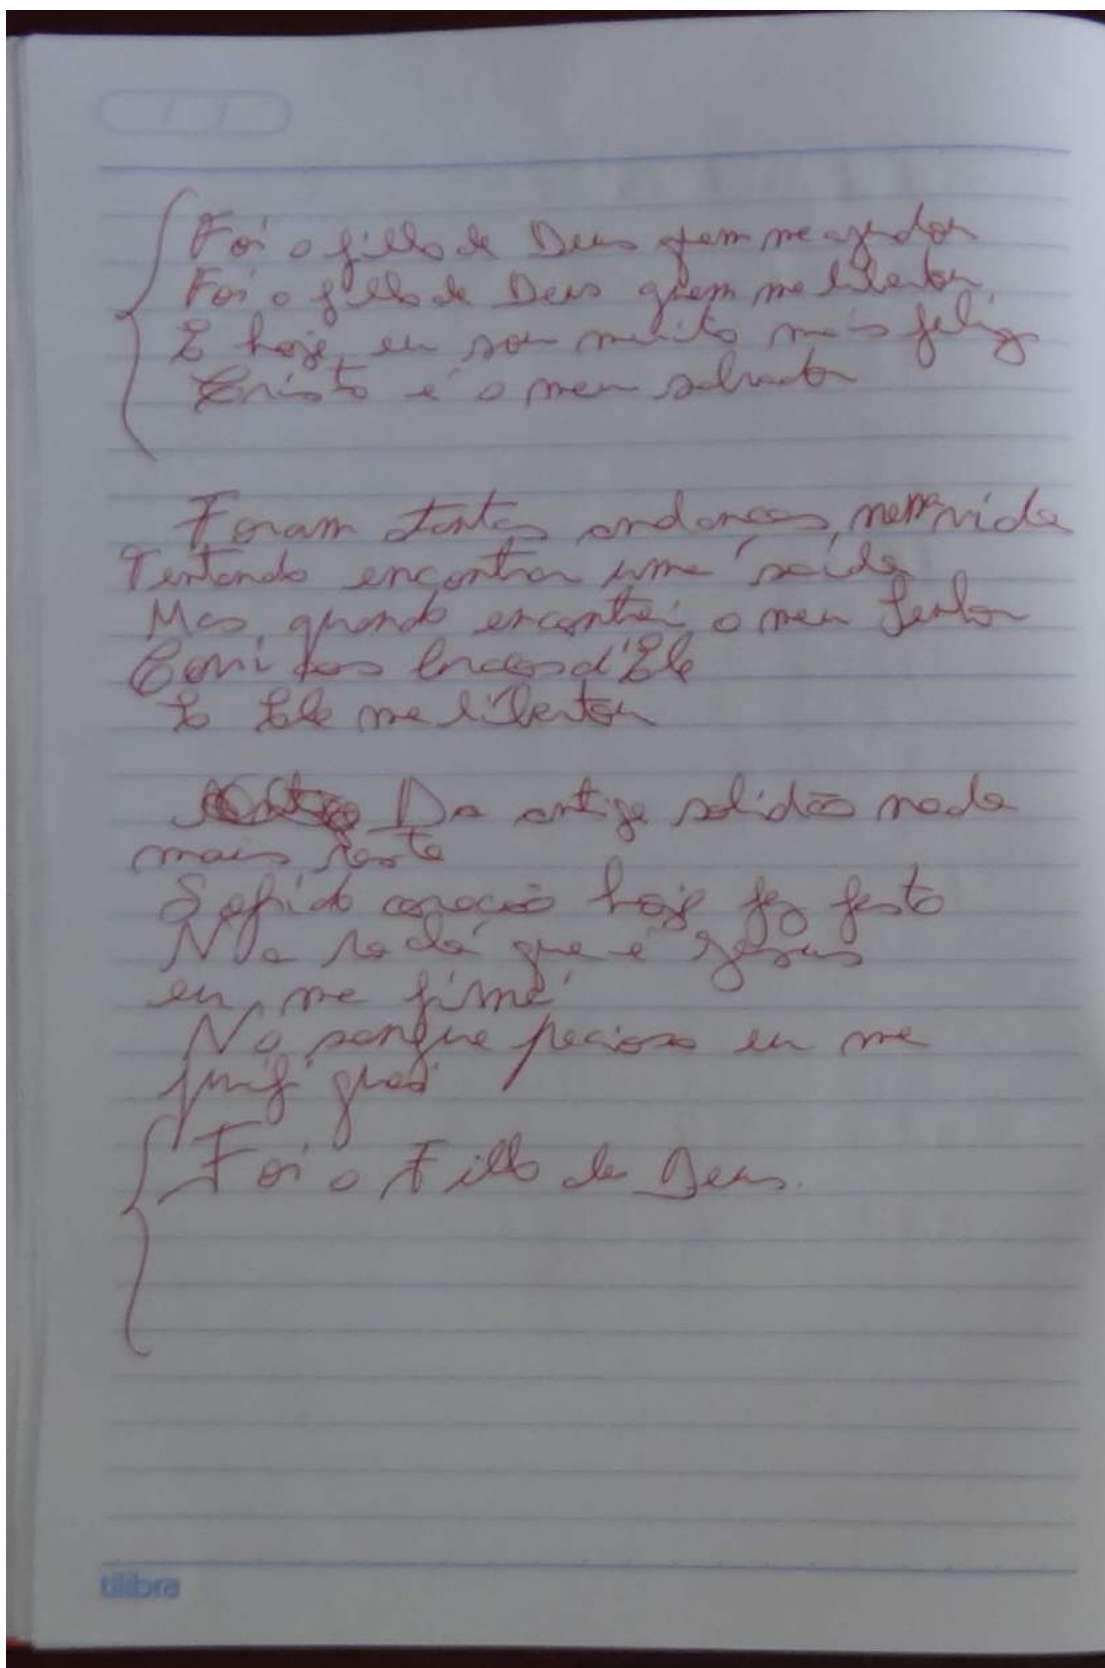 Foi o filho de Deus quem me ajudou
Foi o filho de Deus quem me libertou,
E hoje, eu sou muito mais feliz
Cristo é o meu salvador
Foram tantas andanças, nessa vida
Tentando encontrar uma saída
Mas, quando encontrei, o meu Senhor
Corri pros braços d'Ele
E Ele me libertou
Da antiga solidão nada
mais resta
Sofrido coração hoje faz festa
Na rocha que é Jesus
eu, me firmei
No sangue precioso eu me
purifiquei
Foi o Filho de Deus.
tilibra